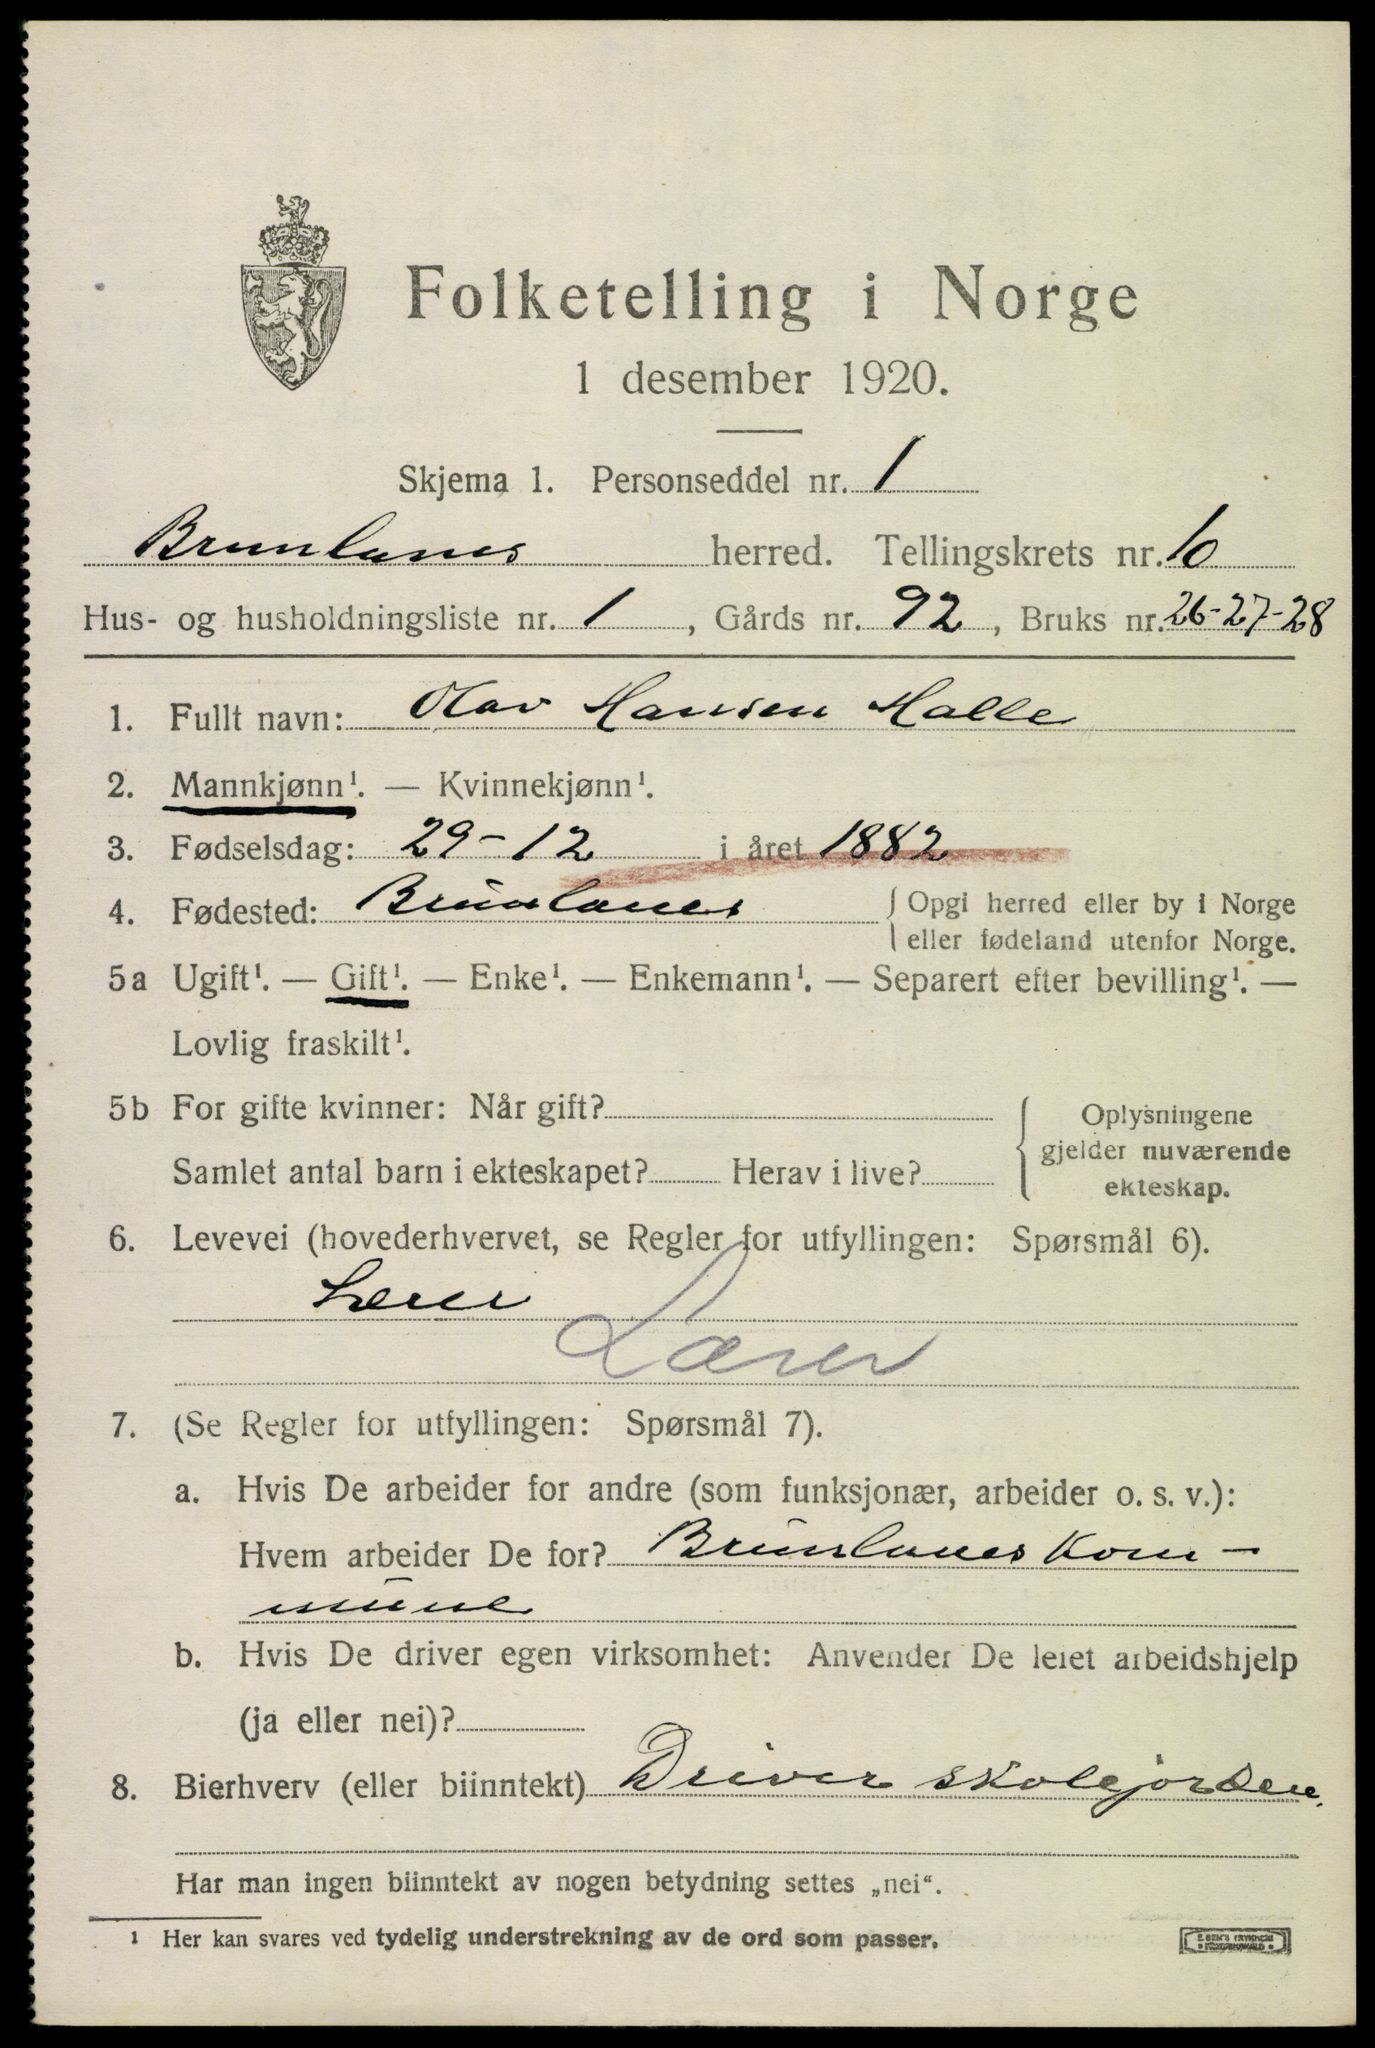 Folketelling i Norge
1 desember 1920.
Skjema 1. Personseddel nr. 1
Brunlanes herred. Tellingskrets nr. 10
Hus- og husholdningsliste nr. 1, Gårds nr. 92, Bruks nr. 26-27-28
1. Fullt navn: Olav Hansen Halle
2. Mannkjønn¹. — Kvinnekjønn¹.
3. Fødselsdag: 29-12 i året 1882
4. Fødested: Brunlanes { Opgi herred eller by i Norge
eller fødeland utenfor Norge.
5a Ugift¹. — Gift¹. — Enke¹. — Enkemann¹. — Separert efter bevilling¹. —
Lovlig fraskilt¹.
5b For gifte kvinner: Når gift?
Samlet antal barn i ekteskapet? Herav i live?
Oplysningene
gjelder nuværende
ekteskap.
6. Levevei (hovederhvervet, se Regler for utfyllingen: Spørsmål 6).
Lærer
Lærer
7. (Se Regler for utfyllingen: Spørsmål 7).
a. Hvis De arbeider for andre (som funksjonær, arbeider o. s. v.):
Hvem arbeider De for? Brunlanes Kom-
mune
b. Hvis De driver egen virksomhet: Anvender De leiet arbeidshjelp
(ja eller nei)?
8. Bierhverv (eller biinntekt) Driver skolejorden.
Har man ingen biinntekt av nogen betydning settes „nei“.
¹ Her kan svares ved tydelig understrekning av de ord som passer.